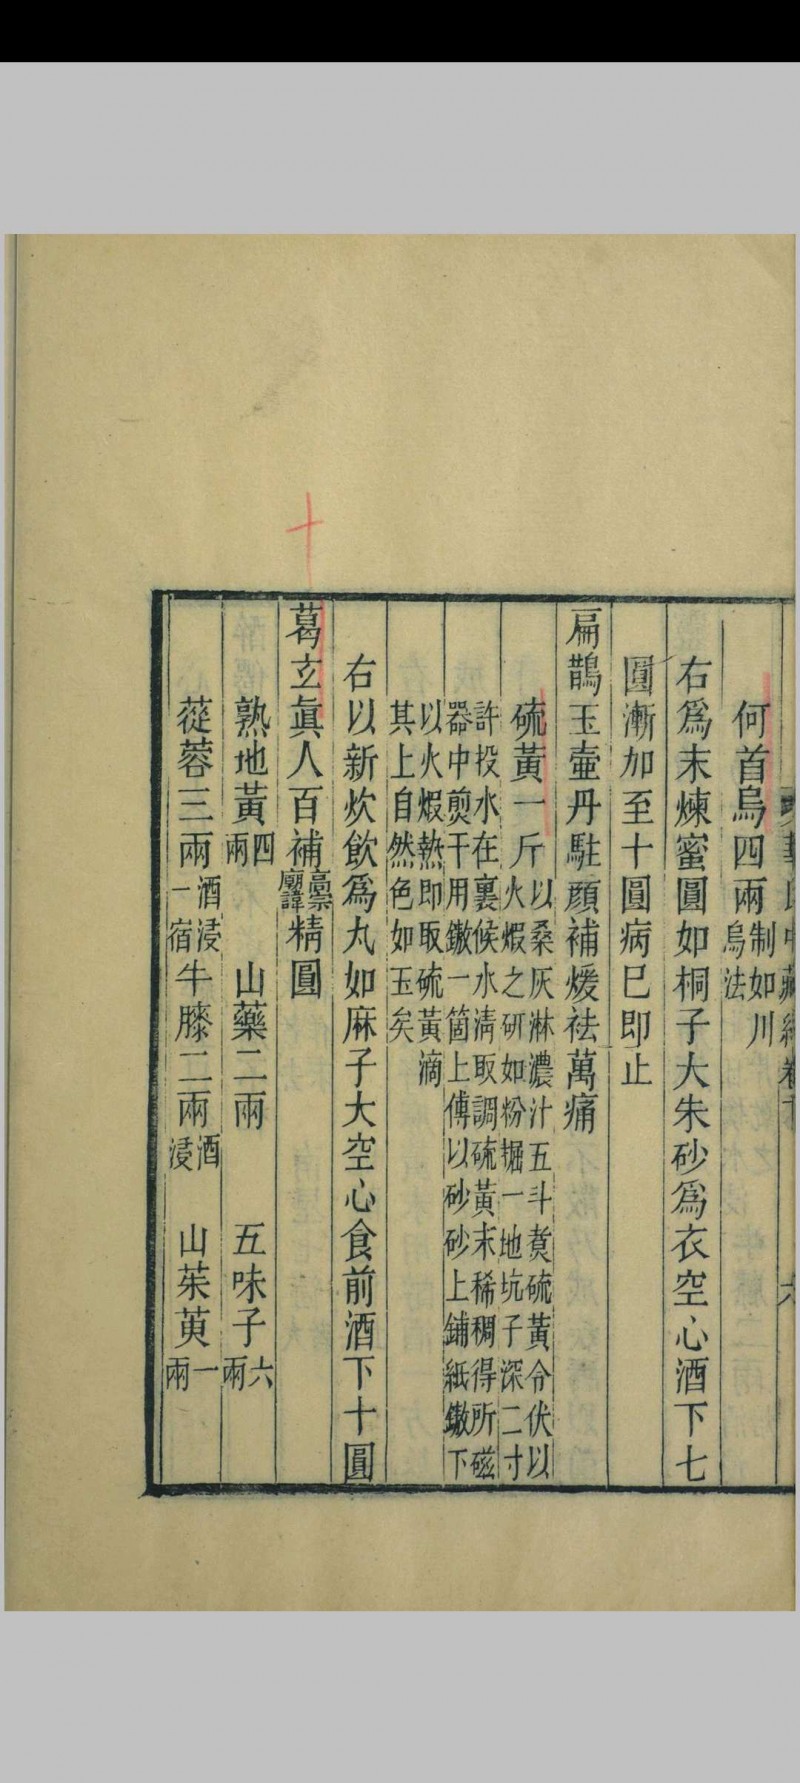 華氏中藏經卷下 六
何首烏四兩制如川烏法
右爲末煉蜜圓如桐子大朱砂爲衣空心酒下七
圓漸加至十圓病已即止
扁鵲玉壺丹駐顏補煖祛萬痛
硫黃一斤以桑灰淋濃汁五斗煑硫黃令伏以
火煆之研如粉掘一地坑子深二寸
許投水在裏候水清取調硫黃末稀稠得所磁
器中煎干用鏾一箇上傅以砂砂上鋪紙鏾下
以火煆熱即取硫黃滴
其上自然色如玉矣
右以新炊飲爲丸如麻子大空心食前酒下十圓
葛玄眞人百補高宗廟諱精圓
熟地黃四兩 山藥二兩 五味子六兩
蓯蓉三兩酒浸一宿 牛膝二兩酒浸 山茱萸一兩